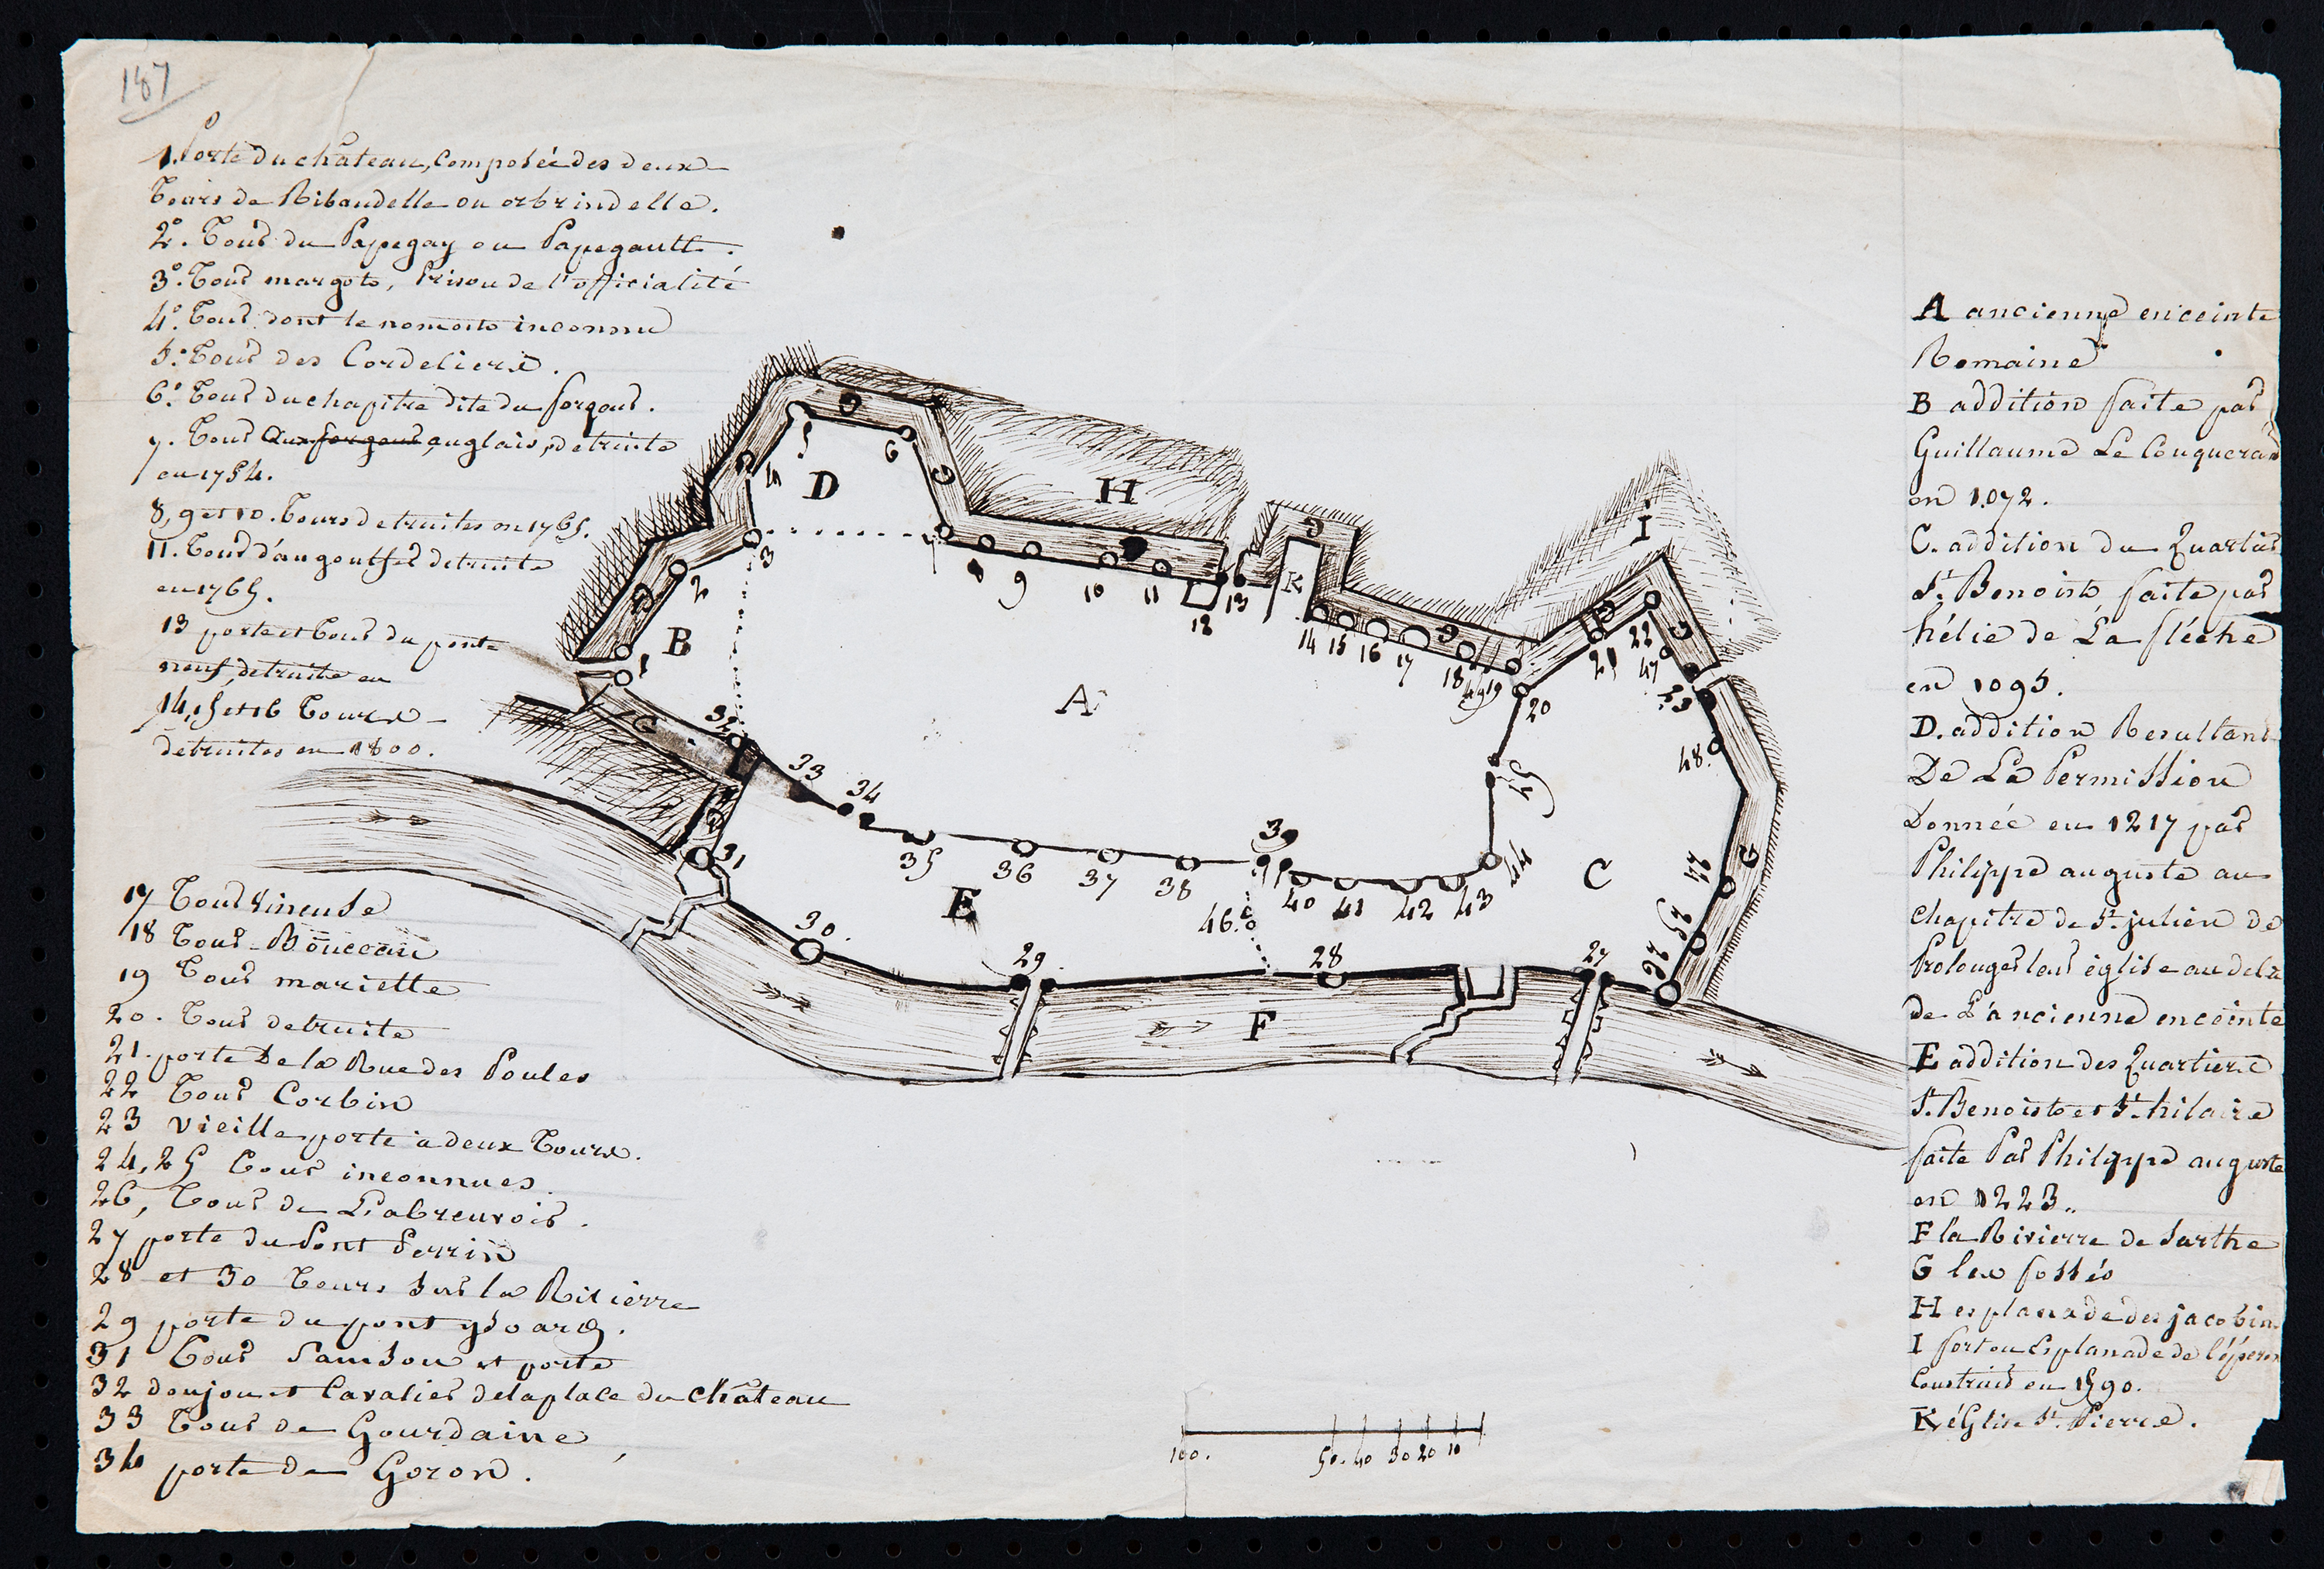 187
1. Porte du château, Composéé des deux
Tours de Ribaudelle ou orbrindelle.
2°. Tour du Papegay ou Papegault.
3°. Tour margot, Prison de l'officialité
4°. Tour dont le nom est inconnu
5°. Tour des Cordeliers.
6°. Tour du chapitre dite du forgour.
7. Tour anglais, détruite
en 1754.
8, 9 et 10. Tours détruites en 1765.
11. Tour d'angoulfer détruite
en 1765.
13 porte et Tour du pont
neuf, détruite en
14, 15 et 16 Tours
détruites en 1800.
17 Tour Vineuse
18 Tour Bouccau
19 Tour mariette
20. Tour détruite
21. porte De la Rue des Poules
22 Tour Corbin
23 Vieille porte à deux Tours.
24, 25 Tour inconnues.
26, Tour de L'abreuvoir.
27 porte du Pont Perrin
28 et 30 Tours sur la Rivierre
29 porte du pont ysoard.
31 Tour Samson et porte
32 donjon et Cavalier de la place du château
33 Tour de Gourdaine
34 porte de Goron.
A ancienne enceinte
Romaine
B addition faite par
Guillaume Le Conquerant
en 1072.
C. addition du Quartier
St. Benoist faite par
hélie de La fléche
en 1095.
D. addition Resultant
De La Permission
Donnée en 1217 par
Philippe auguste au
chapitre de St. julien de
Prolonger leur église au delà
de L'ancienne enceinte
E addition des Quartiers
St. Benoist et St. hilaire
faite Par Philippe auguste
en 1223.
F la Rivierre de Sarthe
G les fossés
H esplanade des jacobins
I fort ou Esplanade de l'éperon
Construit en 1590.
K église St. Pierre.
G
5
6
4
D
G
G
H
G
I
3
8
9
10
11
12
13
K
2
G
14
15
16
17
G
18
49
19
21
22
G
47
B
1
A
20
23
G
32
45
48
33
34
G
35
36
37
38
39
40
41
42
43
44
C
G
24
31
E
46
25
30
29
28
27
26
F
100.
50.
40
30
20
10